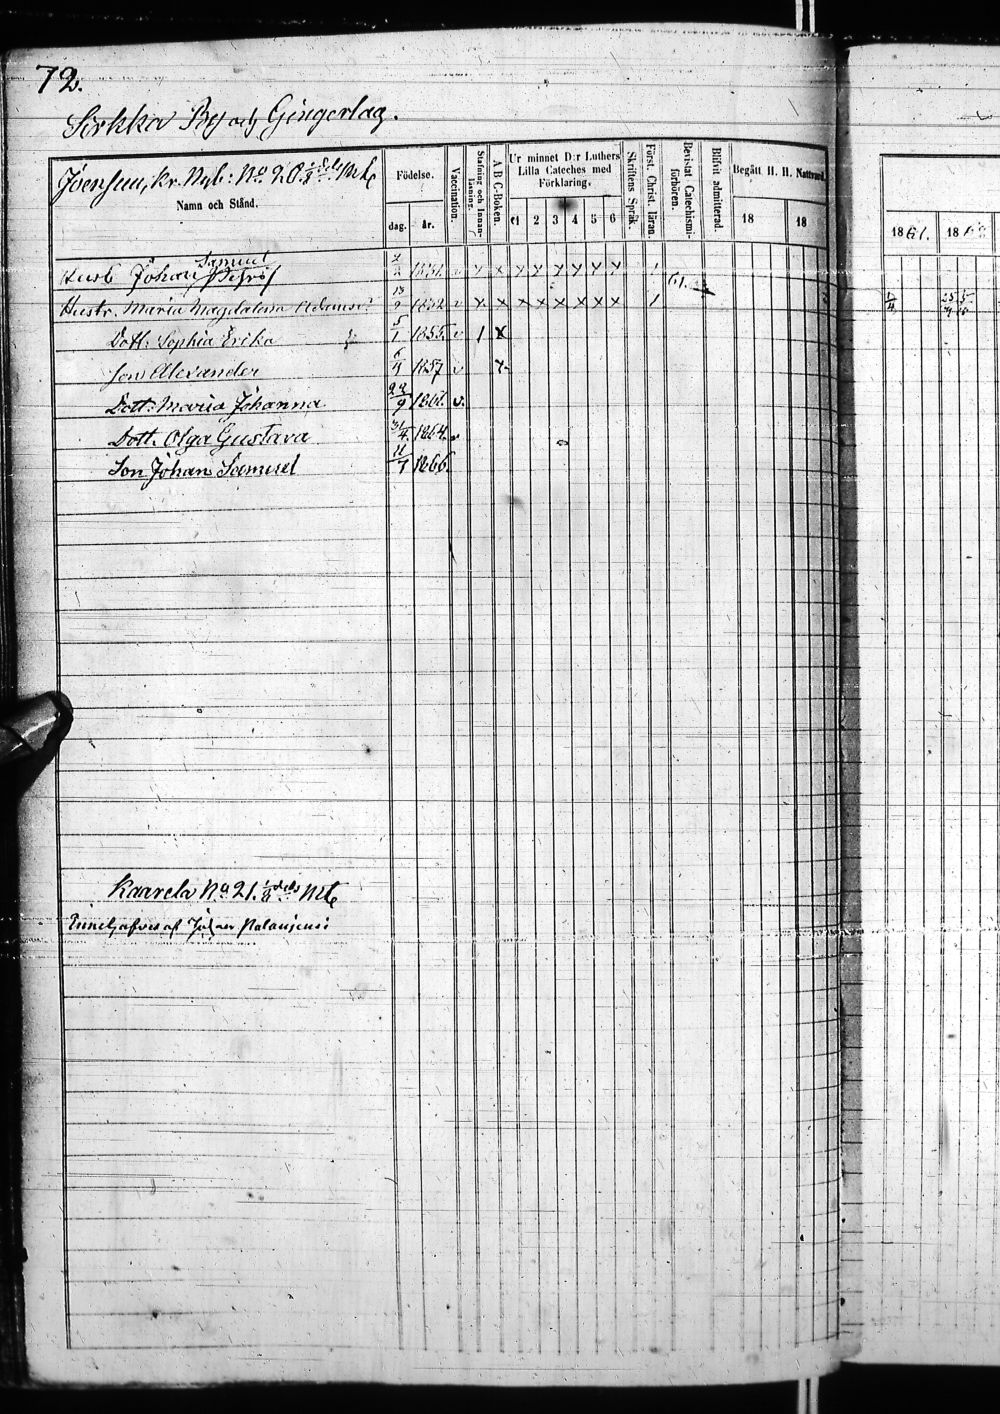 72.
Sirkka By och Gingerlag.
Joensuu, Kr. Nyb: No 20 1/8 dels Mtl
Namn och Stånd.
Födelse.
dag. år.
Vaccination.
Stafning och Innan-läsning.
A B C-Boken.
Ur minnet D:r Luthers Lilla Cateches med Förklaring.
1 2 3 4 5 6
Skriftens Språk.
Först. Christ. läran.
Bevistat Catechismi-förhören.
Blifvit admitterad.
Begått H. H. Nattvard.
18 18
1861. 186
Samuel
Husb Johan 1831. v x x x x x x x x 1
Hustr. Maria Magdalena 1832 v x x x x x x x x 1 61.
Dott: Sophia Erika 5/1 1855. v 1 x
Son Alexander 6/4 1857 v x
Dott: Maria Johanna 22/9 1861. v.
Dott. Olga Gustava 1864. v
Son Johan Samuel 11/7 1866.
Kaarela No 21. 1/8 dels Mtl